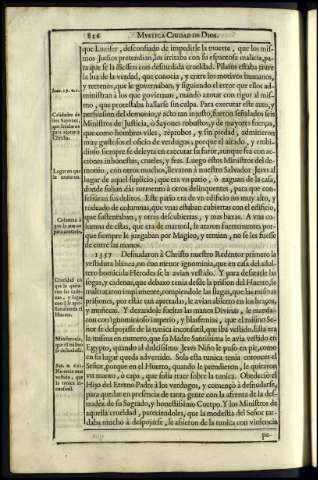 826 MYSTICA CIUDAD DE DIOS.
que Luzifer, desconfiado de impedirle la muerte, que los mis-
mos Iustos pretendian, los irritaba con su espantosa malicia, pa-
ra que se la diessen con desusada crueldad. Pilatos estaba entre
la luz de la verdad, que conocia, y entre los motivos humanos,
y terrenos, que le governaban, y siguiendo el error que ellos ad-
ministran à los que goviernan, mandò azotar con rigor al mis-
mo, que protestaba hallarse sin culpa. Para executar este auto, y
persuasion del demonio, y acto tan injusto, fueron señalados seis
Ministros de Justicia, ò Sayones robustos, y de mayores fuerças,
que como hombres viles, reprobos, y sin piedad, admitieron
muy gustosos el oficio de verdugos; porque el airado, y embi-
dioso siempre se deleyta en executar su furor, aunque sea con ac-
ciones inhonestas, crueles, y feas. Luego estos Ministros del de-
monio, con otros muchos, llevaron à nuestro Salvador Jesus al
lugar de aquel suplicio, que era vn patio, ò zaguan de la casa,
donde solian dàr tormento à otros delinquentes, para que con-
fessaran sus delitos. Este patio era de vn edificio no muy alto, y
rodeado de columnas, que vnas estaban cubiertas con el edificio,
que sustentaban, y otras descubiertas, y mas baxas. A vna co-
lumna de estas, que era de marmol, le ataron fuertemente; por-
que siempre le juzgaban por Magico, y temian, no se les fuesse
de entre las manos.
1337 Desnudaron à Christo nuestro Redentor primero la
vestidura blanca, no con menor ignominia, que en casa del adul-
tero homicida Herodes se la avian vestido. Y para desatarle las
sogas, y cadenas, que debaxo tenia desde la prision del Huerto, le
maltrataron impiamente, rompiendole las llagas, que las mismas
prisiones, por estàr tan apretadas, le avian abierto en los braços,
y muñecas. Y dexandole sueltas las manos Divinas, le manda-
ron con ignominioso imperio, y blasfemias, que el mismo Se-
ñor se despojasse de la tunica inconsutil, que iba vestido. Esta era
la misma en numero, que su Madre Santissima le avia vestido en
Egypto, quando al dulcissimo Jesus Niño le puso en pie, como
en su lugar queda advertido. Sola esta tunica tenia entonces el
Señor, porque en el Huerto, quando le prendieron, le quitaron
vn manto, ò capa, que solia traer sobre la tunica. Obedeciò el
Hijo del Eterno Padre à los verdugos, y començò à desnudarse,
para quedar en presencia de tanta gente con la afrenta de la des-
nudèz de su Sagrado, y honestissimo Cuerpo. Y los Ministros de
aquella crueldad, pareciendoles, que la modestia del Señor tar-
daba mucho à despojarse, le asieron de la tunica con violencia
pa-
Ioan. 19. v. 1.
Calidades de
los Sayones,
que
para azotar à
Christo.
Lugar en que
le azotaron.
Columna à
que le ataron
Crueldad con
que le